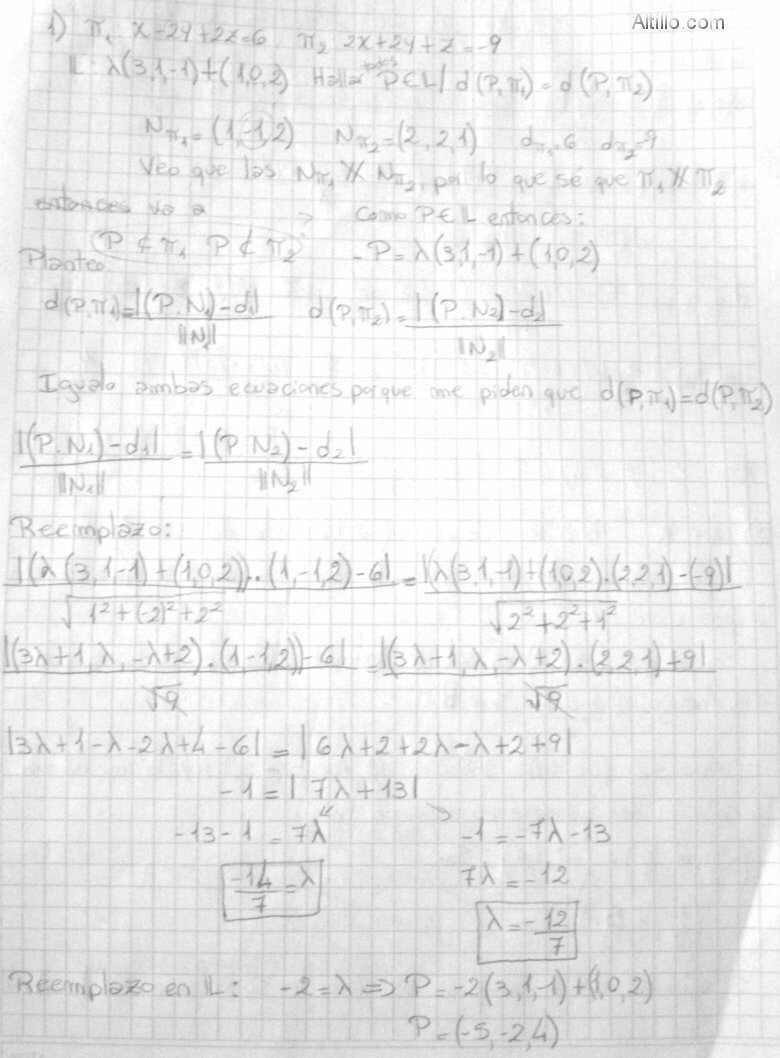 Altillo.com
1) π₁ x-2y+2z=6 π₂ 2x+2y+z=-9
L: λ(3,1,-1)+(1,0,2) Hallar todos P∈L/ d(P,π₁)=d(P,π₂)
Nπ₁=(1,-1,2) Nπ₂=(2,2,1) dπ₁=6 dπ₂=-9
Veo que las Nπ₁ ∦ Nπ₂, por lo que sé que π₁ ∦ π₂
entonces va a → Como P∈L entonces:
P∉π₁ P∉π₂ -P=λ(3,1,-1)+(1,0,2)
Planteo
d(P,π₁)=|(P.N₁)-d₁|/||N₁|| d(P,π₂)=|(P.N₂)-d₂|/||N₂||
Igualo ambas ecuaciones porque me piden que d(P,π₁)=d(P,π₂)
|(P.N₁)-d₁|/||N₁|| = |(P N₂)-d₂|/||N₂||
Reemplazo:
|(λ(3,1,-1)+(1,0,2)).(1,-1,2)-6|/√(1²+(-2)²+2²) = |(λ(3,1,-1)+(1,0,2).(2,2,1)-(-9)|/√(2²+2²+1²)
|(3λ+1,λ,-λ+2).(1-1,2))-6|/√9 = |(3λ+1,λ-λ+2).(2,2,1)+9|/√9
|3λ+1-λ-2λ+4-6| = |6λ+2+2λ-λ+2+9|
-1=|7λ+13|
-13-1=7λ -1=-7λ-13
-14/7=λ 7λ=-12
λ=-12/7
Reemplazo en L: -2=λ ⇒ P=-2(3,1,-1)+(1,0,2)
P=(-5,-2,4)